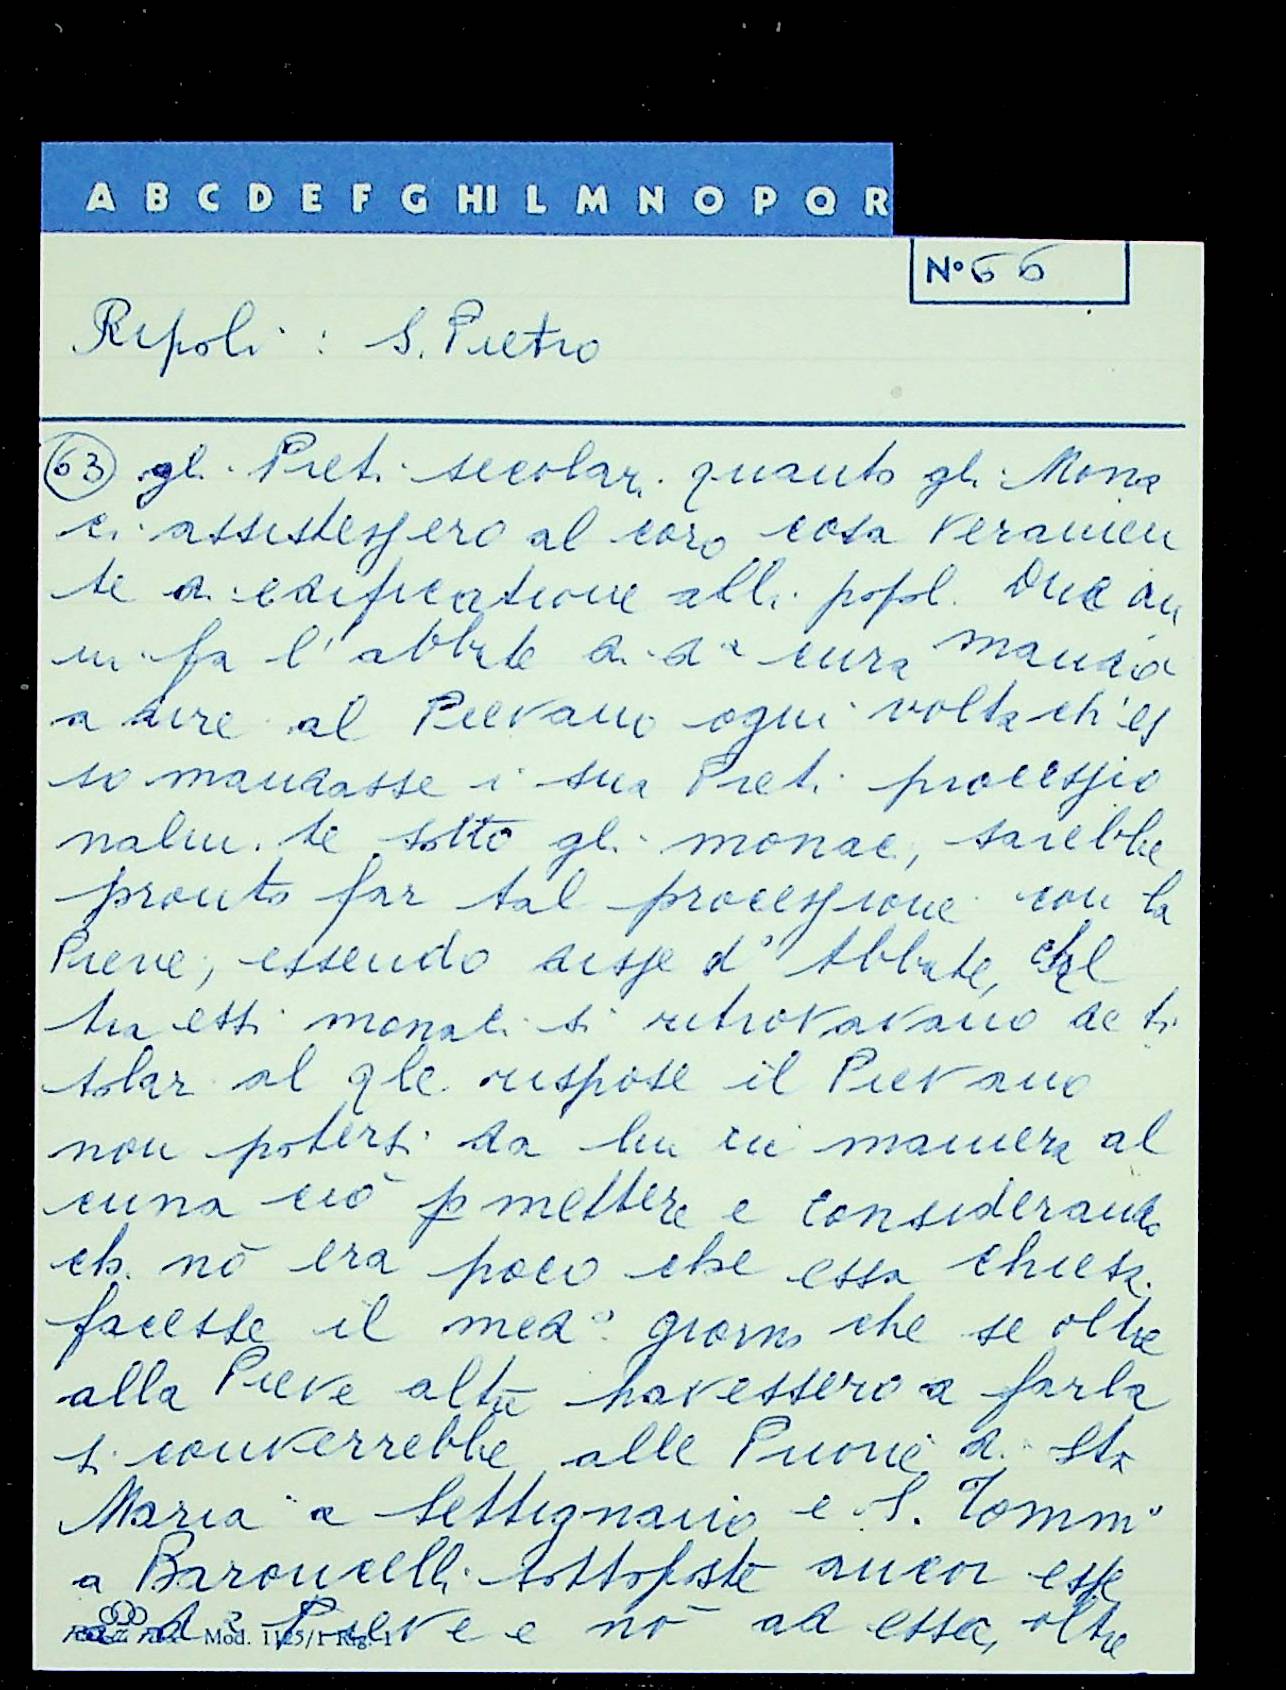 A B C D E F G HI L M N O P Q R
N° 66
Ripoli : S. Pietro
63 gli Preti secolari quanto gli Mona
ci assistessero al coro cosa veramen
te di edificatione alli popol. Due an
ni fa l'abbate di da cura mandò
a dire al Pievano ogni volta ch'es
so mandasse i sua Preti processio
nalm.te sotto gli monaci, sarebbe
pronto far tal processione con la
Pieve, essendo disse do Abbate, chel
tra essi monaci si ritrovavano de ti
tolar al qle rispose il Pievano
non potersi da lui in maniera al
cuna ciò pmettere e considerando
ch. nō era poco che essa chiesa
facesse il medo giorno che se oltre
alla Pieve altre havessero a farla
si converrebbe alle Priorie di Sta
Maria a Settignano e S. Tommo
a Baroncelli sottoposte ancor esse
a da Pieve e nō ad essa, oltre
Mod. 1125/1 Rig. 1